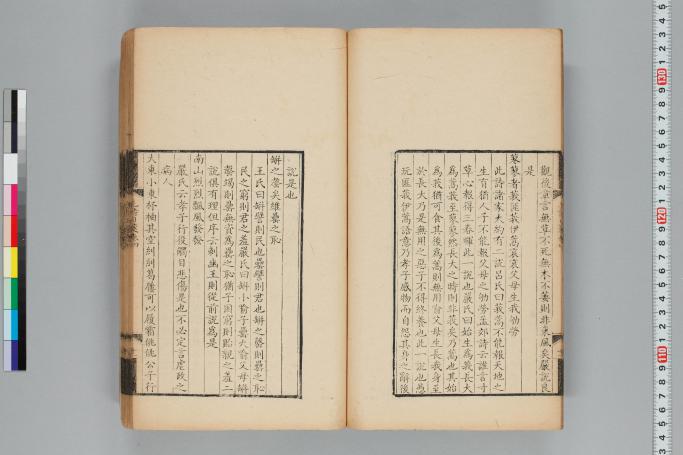 觀後章言無草不死無木不萎則非衰風矣嚴說良
是
蓼蓼者莪匪莪伊蒿哀哀父母生我劬勞
此詩諸家大約有二說呂氏曰莪蒿不能報天地之
生育猶人子不能報父母之劬勞孟郊詩云誰言寸
草心報得三春暉此一說也嚴氏曰始生為莪長大
為蒿莪至蓼蓼然長大之時則非莪矣乃蒿也其始
為莪猶可食其後為蒿則無用喻父母生長我身至
於長大乃是無用之惡子不得終養也此一說也愚
玩匪莪伊蒿語意乃孝子感物而自怨其身之辭後
說是也
缾之罄矣維罍之恥
王氏曰缾譬則民也罍譬則君也缾之罄則罍之恥
民之窮則君之羞嚴氏曰缾小喻子罍大喻父母缾
罄竭則罍無資為罍之恥猶子困窮則貽親之羞二
說俱有理但序云刺幽王則從前說為是
南山烈烈飄風發發
嚴氏云孝子行役觸目悲傷是也不必定言虐政之
病人
大東小東杼柚其空糾糾葛屨可以履霜佻佻公子行